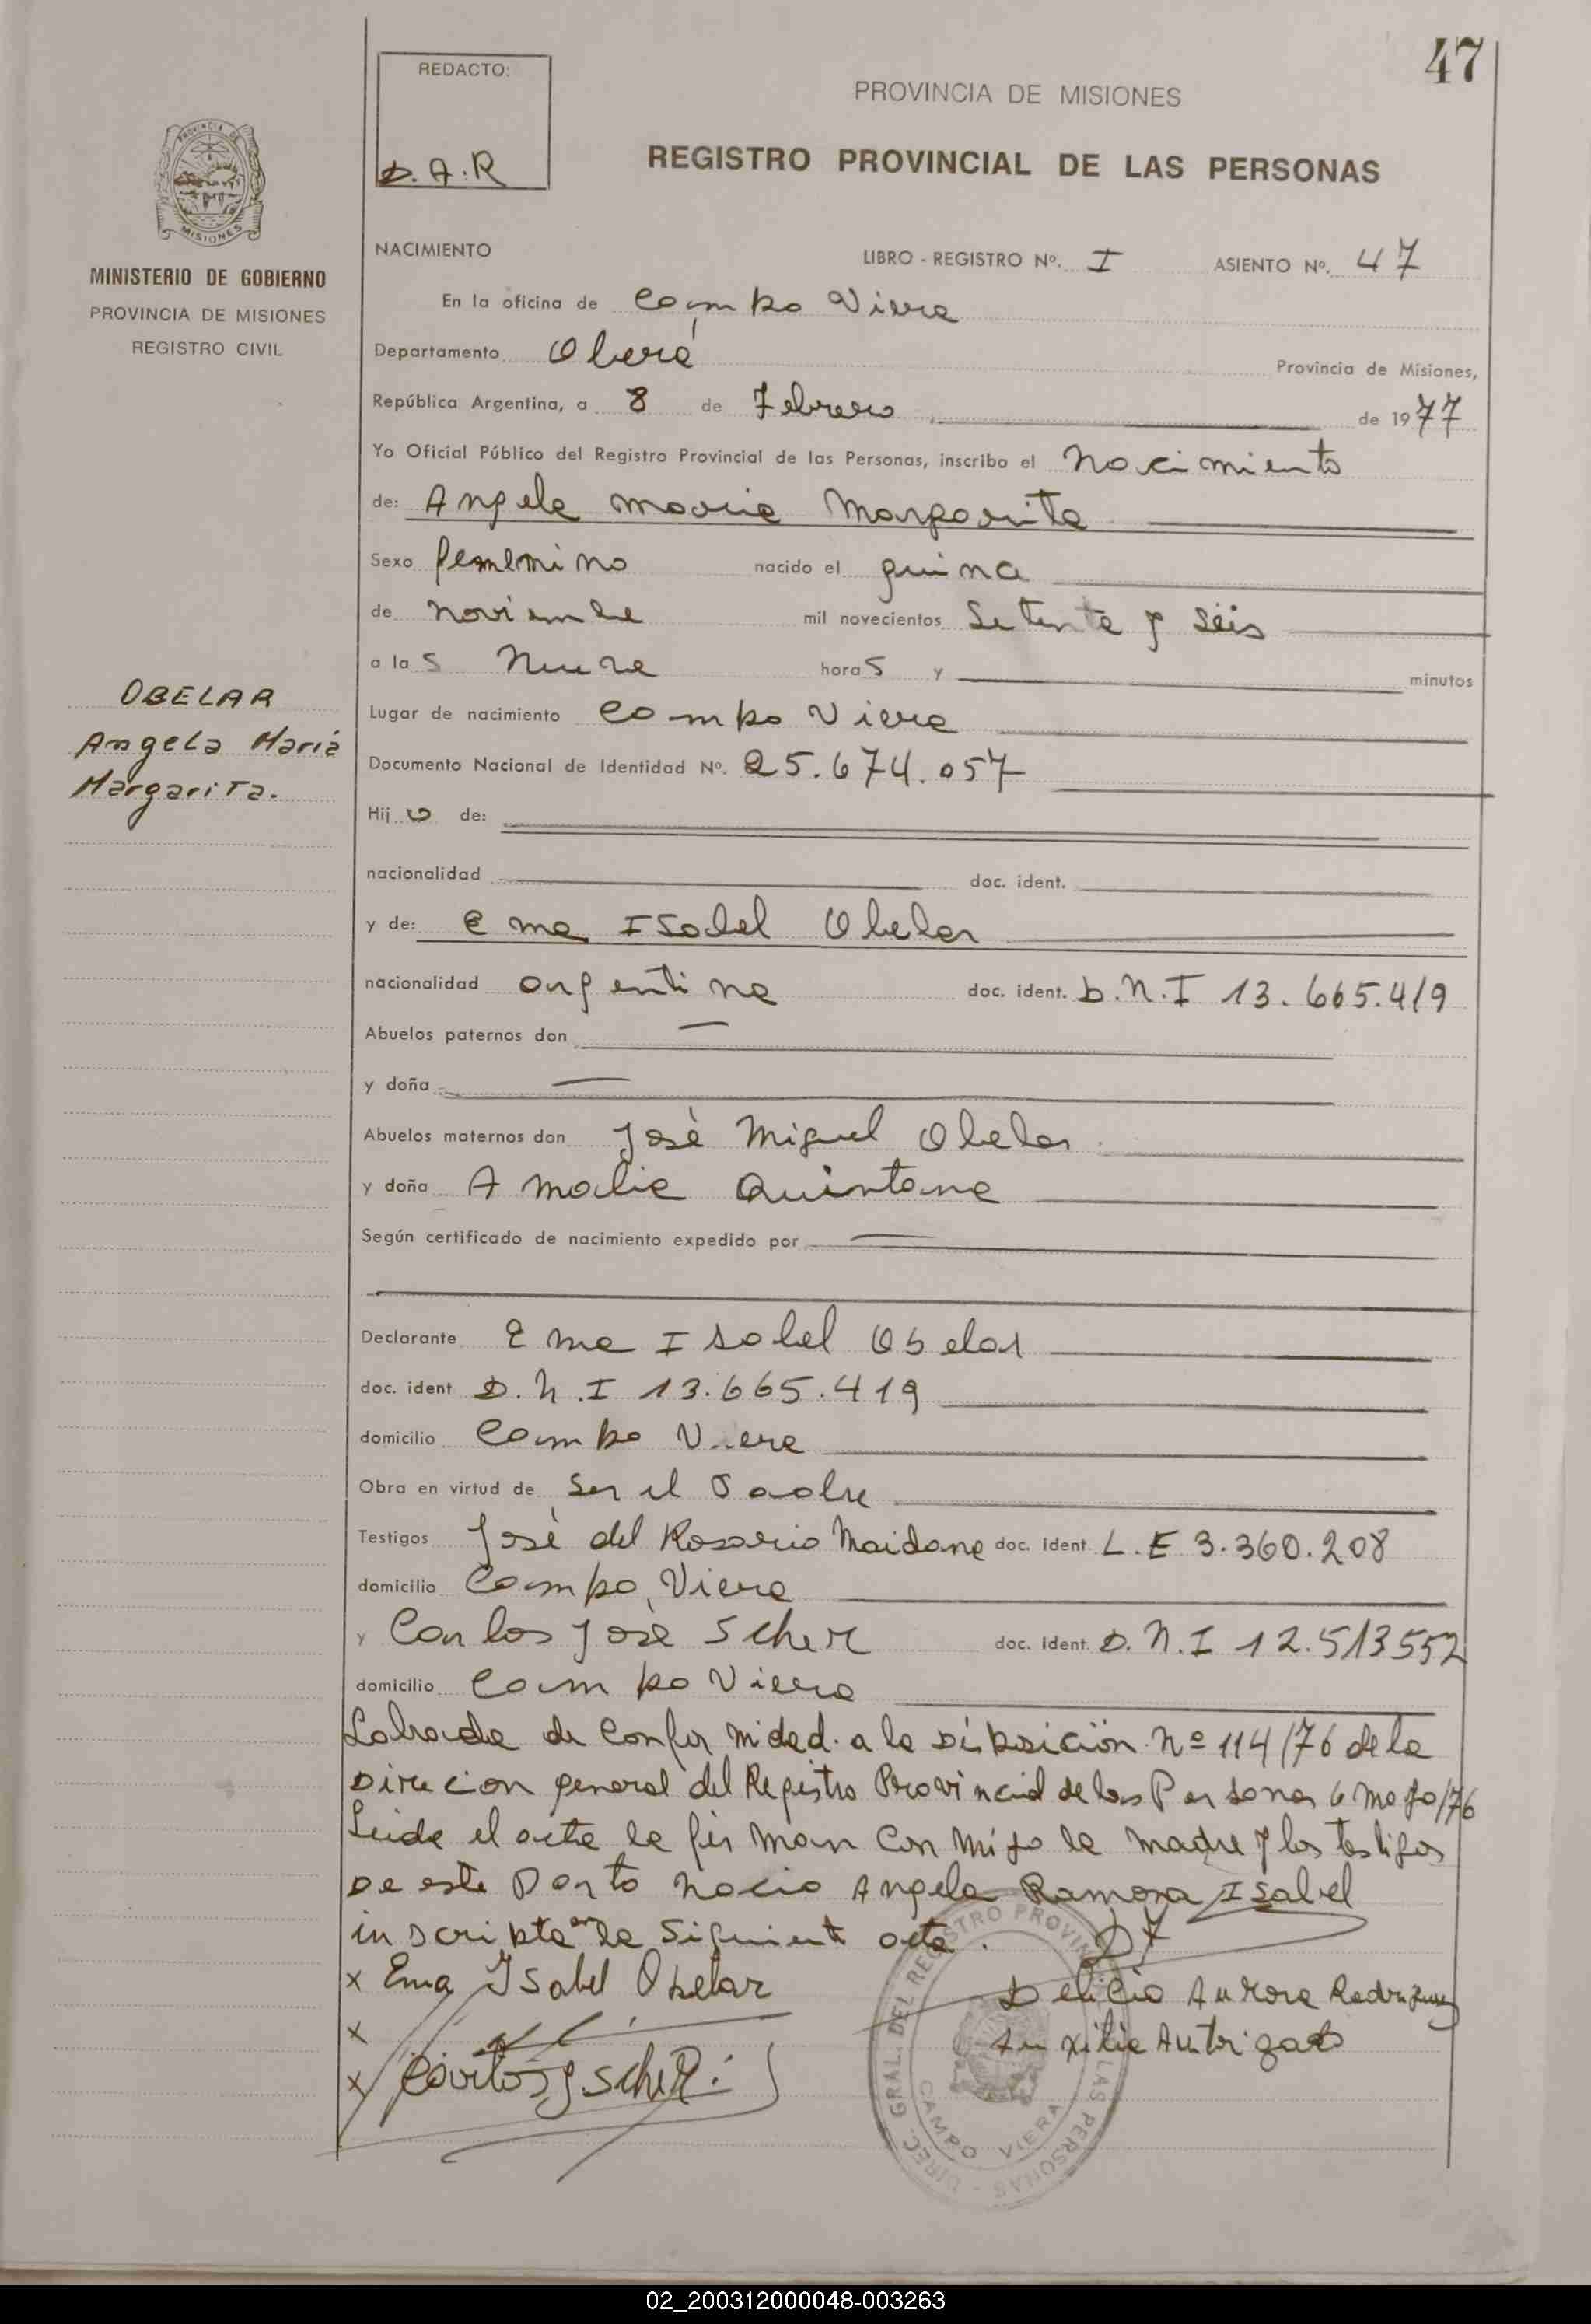 47
REDACTO:
D.A.R
PROVINCIA DE MISIONES
REGISTRO PROVINCIAL DE LAS PERSONAS
PROVINCIA DE
MISIONES
MINISTERIO DE GOBIERNO
PROVINCIA DE MISIONES
REGISTRO CIVIL
NACIMIENTO LIBRO - REGISTRO Nº. I ASIENTO Nº. 47
En la oficina de Campo Viera
Departamento Oberá Provincia de Misiones,
República Argentina, a 8 de Febrero de 1977
Yo Oficial Público del Registro Provincial de las Personas, inscribo el Nacimiento
de: Angela Maria Margarita
Sexo femenino nacido el
de noviembre mil novecientos Setenta y Seis
a las Nueve horas y minutos
OBELAR
Angela Mariá
Margarita.
Lugar de nacimiento Campo Viera
Documento Nacional de Identidad Nº. 25.674.057
Hij de:
nacionalidad doc. ident.
y de: Ema Isabel Obelar
nacionalidad argentina doc. ident. D.N.I 13.665.419
Abuelos paternos don —
y doña —
Abuelos maternos don José Miguel Obelar
y doña Amalia Quintana
Según certificado de nacimiento expedido por —
Declarante Ema Isabel Obelar
doc. ident D.N.I 13.665.419
domicilio Campo Viera
Obra en virtud de Ser el
Testigos José del Rosario Maidana doc. ident. L.E 3.360.208
domicilio Campo Viera
y Carlos José Scherr doc. ident. D.N.I 12.513552
domicilio Campo Viera
Labrada de Conformidad a la Disposición Nº 114/76 de la
Direcion general del Registro Provincial de las Personas 6 mayo/76
Leida el acta la firman Con migo la madre y los testigos
De este Parto nacio Angela Ramona Isabel
inscripta en la Siguient acta.
x Ema Isabel Obelar
x
x Carlos J Scherr
Delicia Aurora Rodriguez
Auxilia Autorizado
DIREC. GRAL. DEL REGISTRO PROVINCIAL DE LAS PERSONAS
CAMPO VIERA
02_200312000048-003263